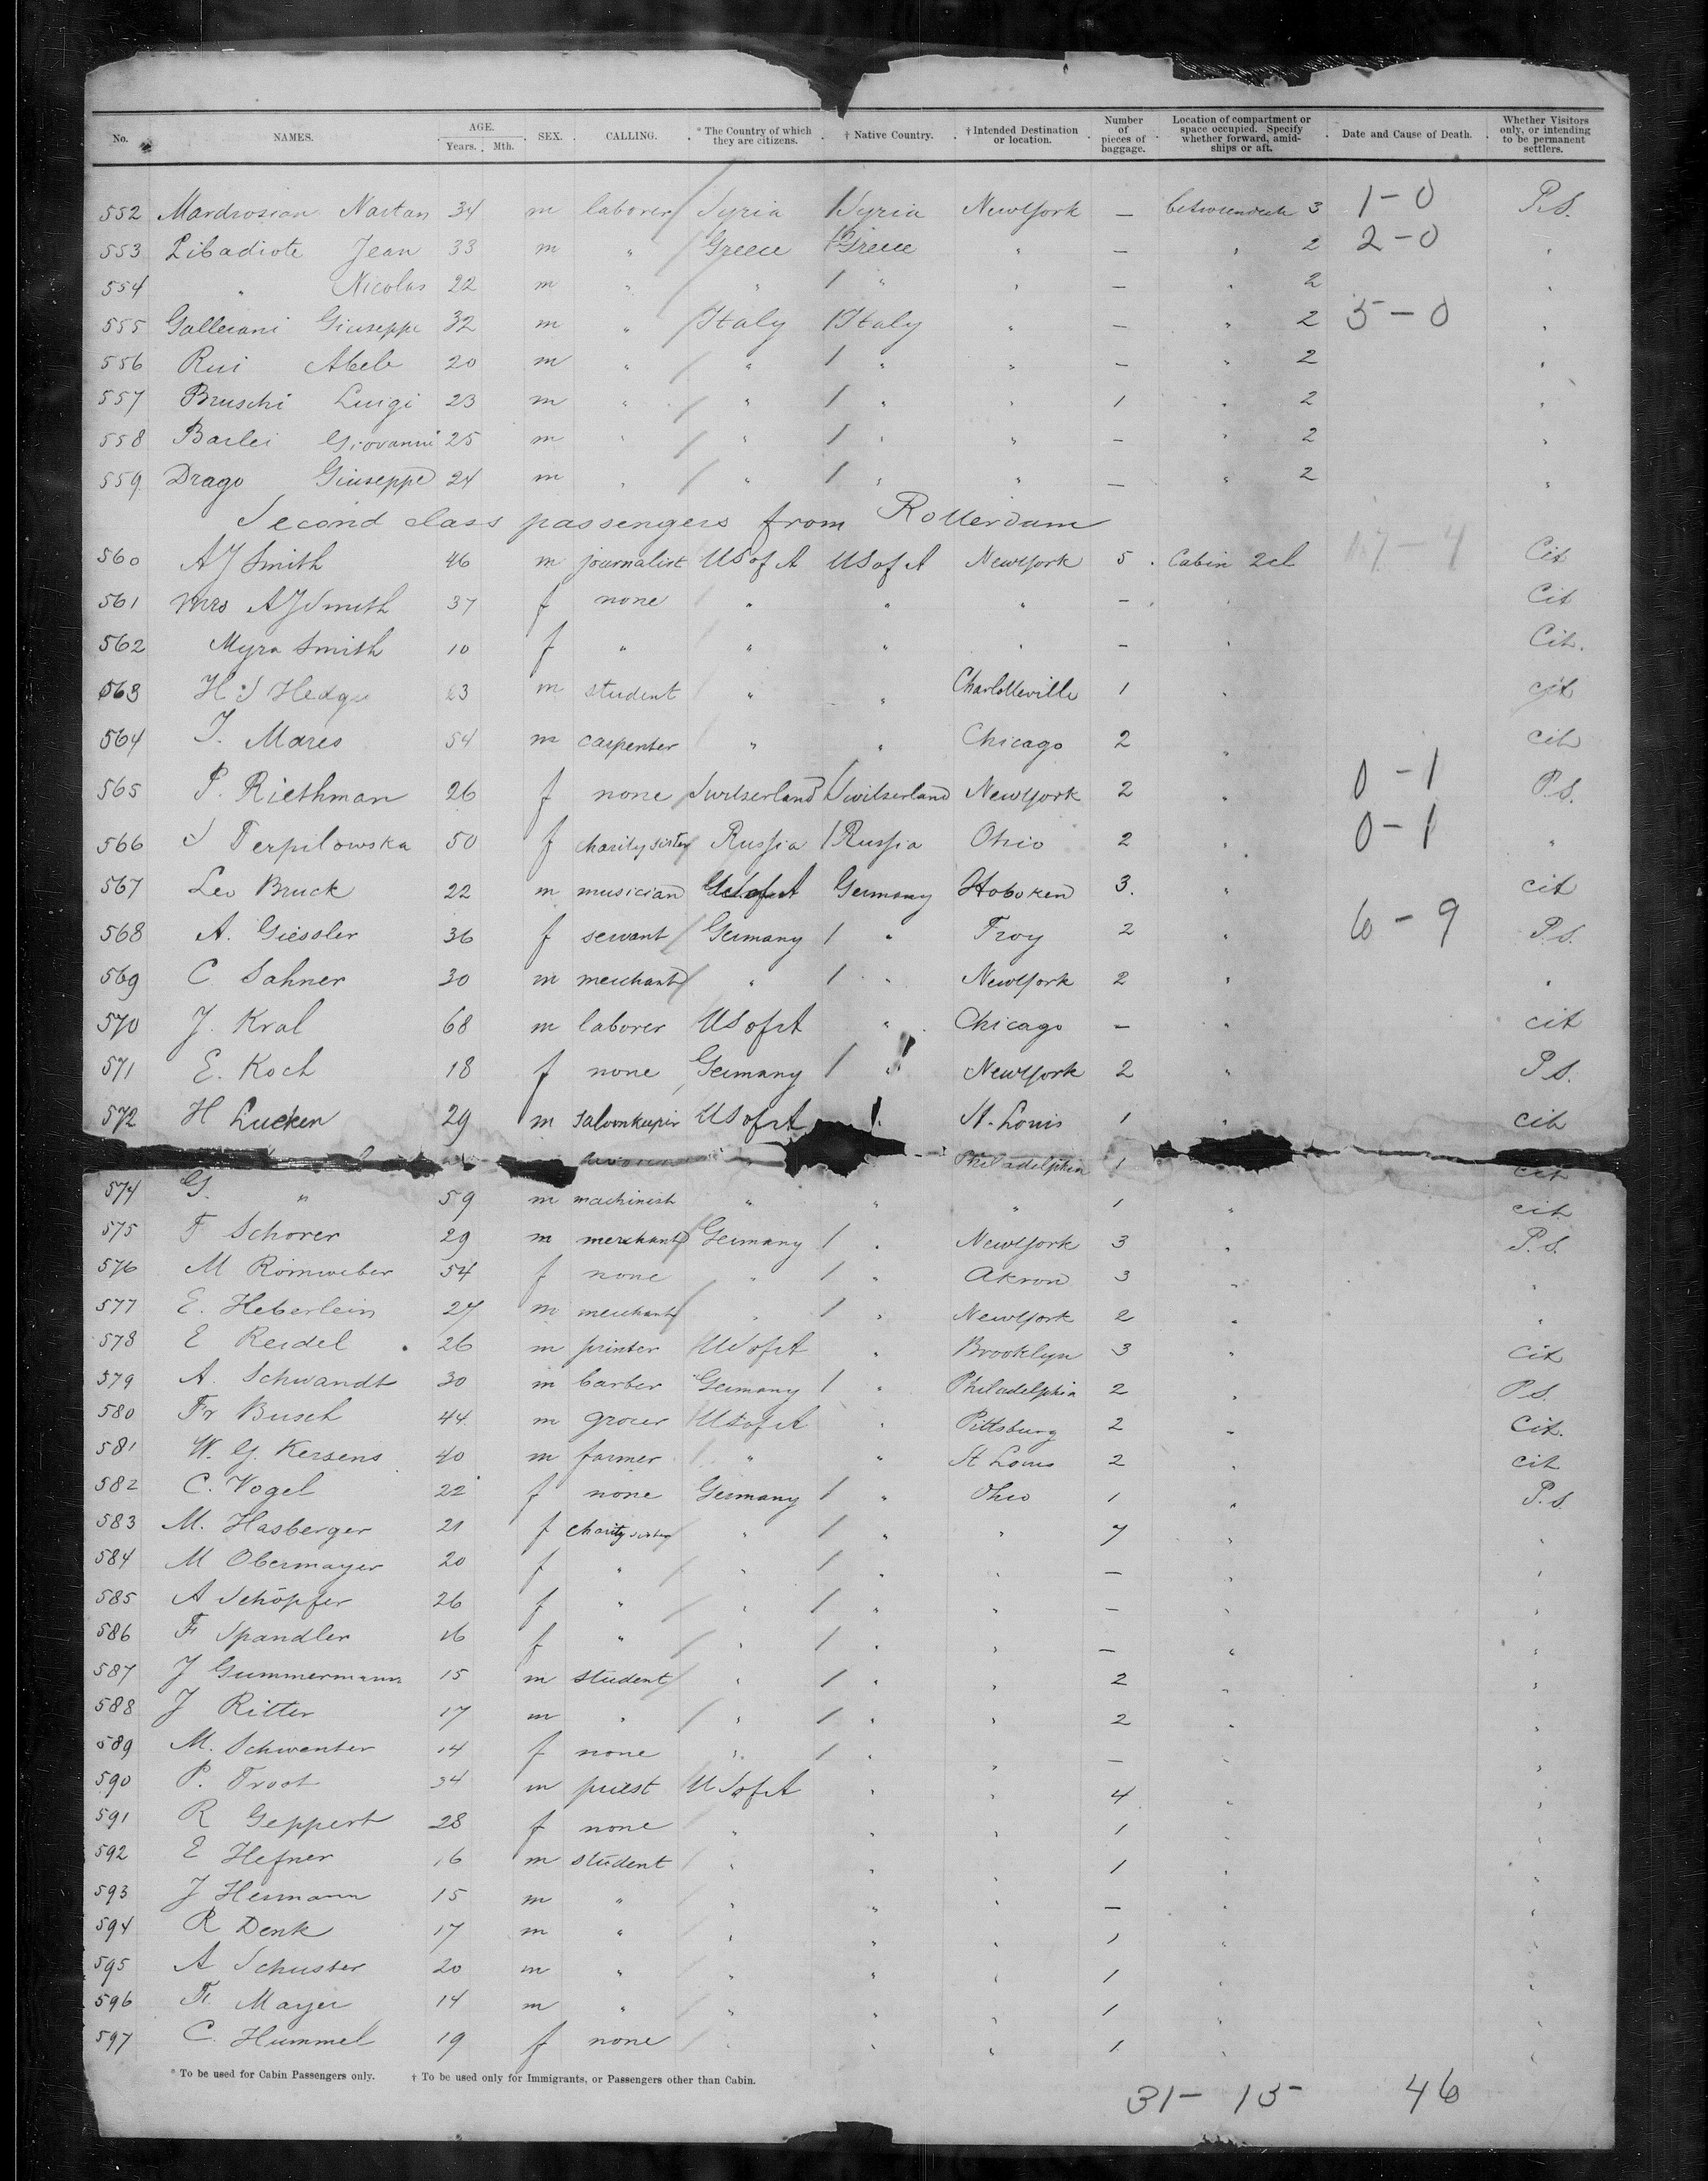 No. NAMES. AGE. Years. Mth. SEX. CALLING. * The Country of which they are citizens. † Native Country. † Intended Destination or location. Number of pieces of baggage. Location of compartment or space occupied. Specify whether forward, amidships or aft. Date and Cause of Death. Whether Visitors only, or intending to be permanent settlers.
552 Mardrosian Nartan 34 m laborer Syria Syria NewYork — betweendeck 3 1-0 P.S.
553 Libadiote Jean 33 m " Greece Greece " — " 2 2-0 "
554 " Nicolas 22 m " " " " — " 2 "
555 Gallerani Giuseppe 32 m " Italy Italy " — " 2 5-0 "
556 Rui Abele 20 m " " " " — " 2 "
557 Bruschi Luigi 23 m " " " " 1 " 2 "
558 Barlei Giovanni 25 m " " " " — " 2 "
559 Drago Giuseppe 24 m " " " " — " 2 "
Second class passengers from Rotterdam
560 A J Smith 46 m journalist US of A US of A NewYork 5 Cabin 2cl 17-4 Cit
561 Mrs A J Smith 37 f none " " " — " Cit
562 Myra Smith 10 f " " " " — " Cit.
563 H S Hedge 23 m student " " Charlotteville 1 " cit
564 J. Mares 54 m carpenter " " Chicago 2 " cit
565 P. Riethman 26 f none Switserland Switserland NewYork 2 " 0-1 P.S.
566 S Terpilowska 50 f charity sister Russia Russia Ohio 2 " 0-1 "
567 Leo Bruck 22 m musician US of A Germany Hoboken 3. " cit
568 A. Giessler 36 f servant Germany " Troy 2 " 6-9 P.S.
569 C Sahner 30 m merchant " " NewYork 2 " "
570 J. Kral 68 m laborer US of A " Chicago — " cit
571 E. Koch 18 f none Germany " NewYork 2 " P.S.
572 H Lucken 29 m saloonkeepir US of A St. Louis 1 " cit
Philadelphia 1 cit
574 G. " 59 m machinist " " " 1 " cit.
575 F Schorer 29 m merchant Germany " NewYork 3 " P.S.
576 M Romweber 54 f none " " Akron 3 " "
577 E. Heberlein 27 m merchant " " NewYork 2 " "
578 E Reidel 26 m printer US of A " Brooklyn 3 " Cit
579 A. Schwandt 30 m barber Germany " Philadelphia 2 " P.S.
580 Fr Busch 44 m grocer US of A " Pittsburg 2 " Cit.
581 W. G. Kersens 40 m farmer " " St Louis 2 " cit
582 C. Vogel 22 f none Germany " Ohio 1 " P.S
583 M. Hasberger 21 f Charity sister " " " 7 " "
584 M Obermayer 20 f " " " " — " "
585 A Schöpfer 26 f " " " " — " "
586 F Spandler 16 f " " " " — " "
587 J Gummermann 15 m student " " " 2 " "
588 J Ritter 17 m " " " " 2 " "
589 M. Schwenter 14 f none " " " — " "
590 P. Trost 34 m priest US of A " " 4 " "
591 R Geppert 28 f none " " " 1 " "
592 E Hefner 16 m student " " " 1 " "
593 J Hermann 15 m " " " " — " "
594 R Denk 17 m " " " " 1 " "
595 A Schuster 20 m " " " " 1 " "
596 Fr. Mayer 14 m " " " " 1 " "
597 C. Hummel 19 f none " " " 1 " "
* To be used for Cabin Passengers only. † To be used only for Immigrants, or Passengers other than Cabin.
31- 15- 46